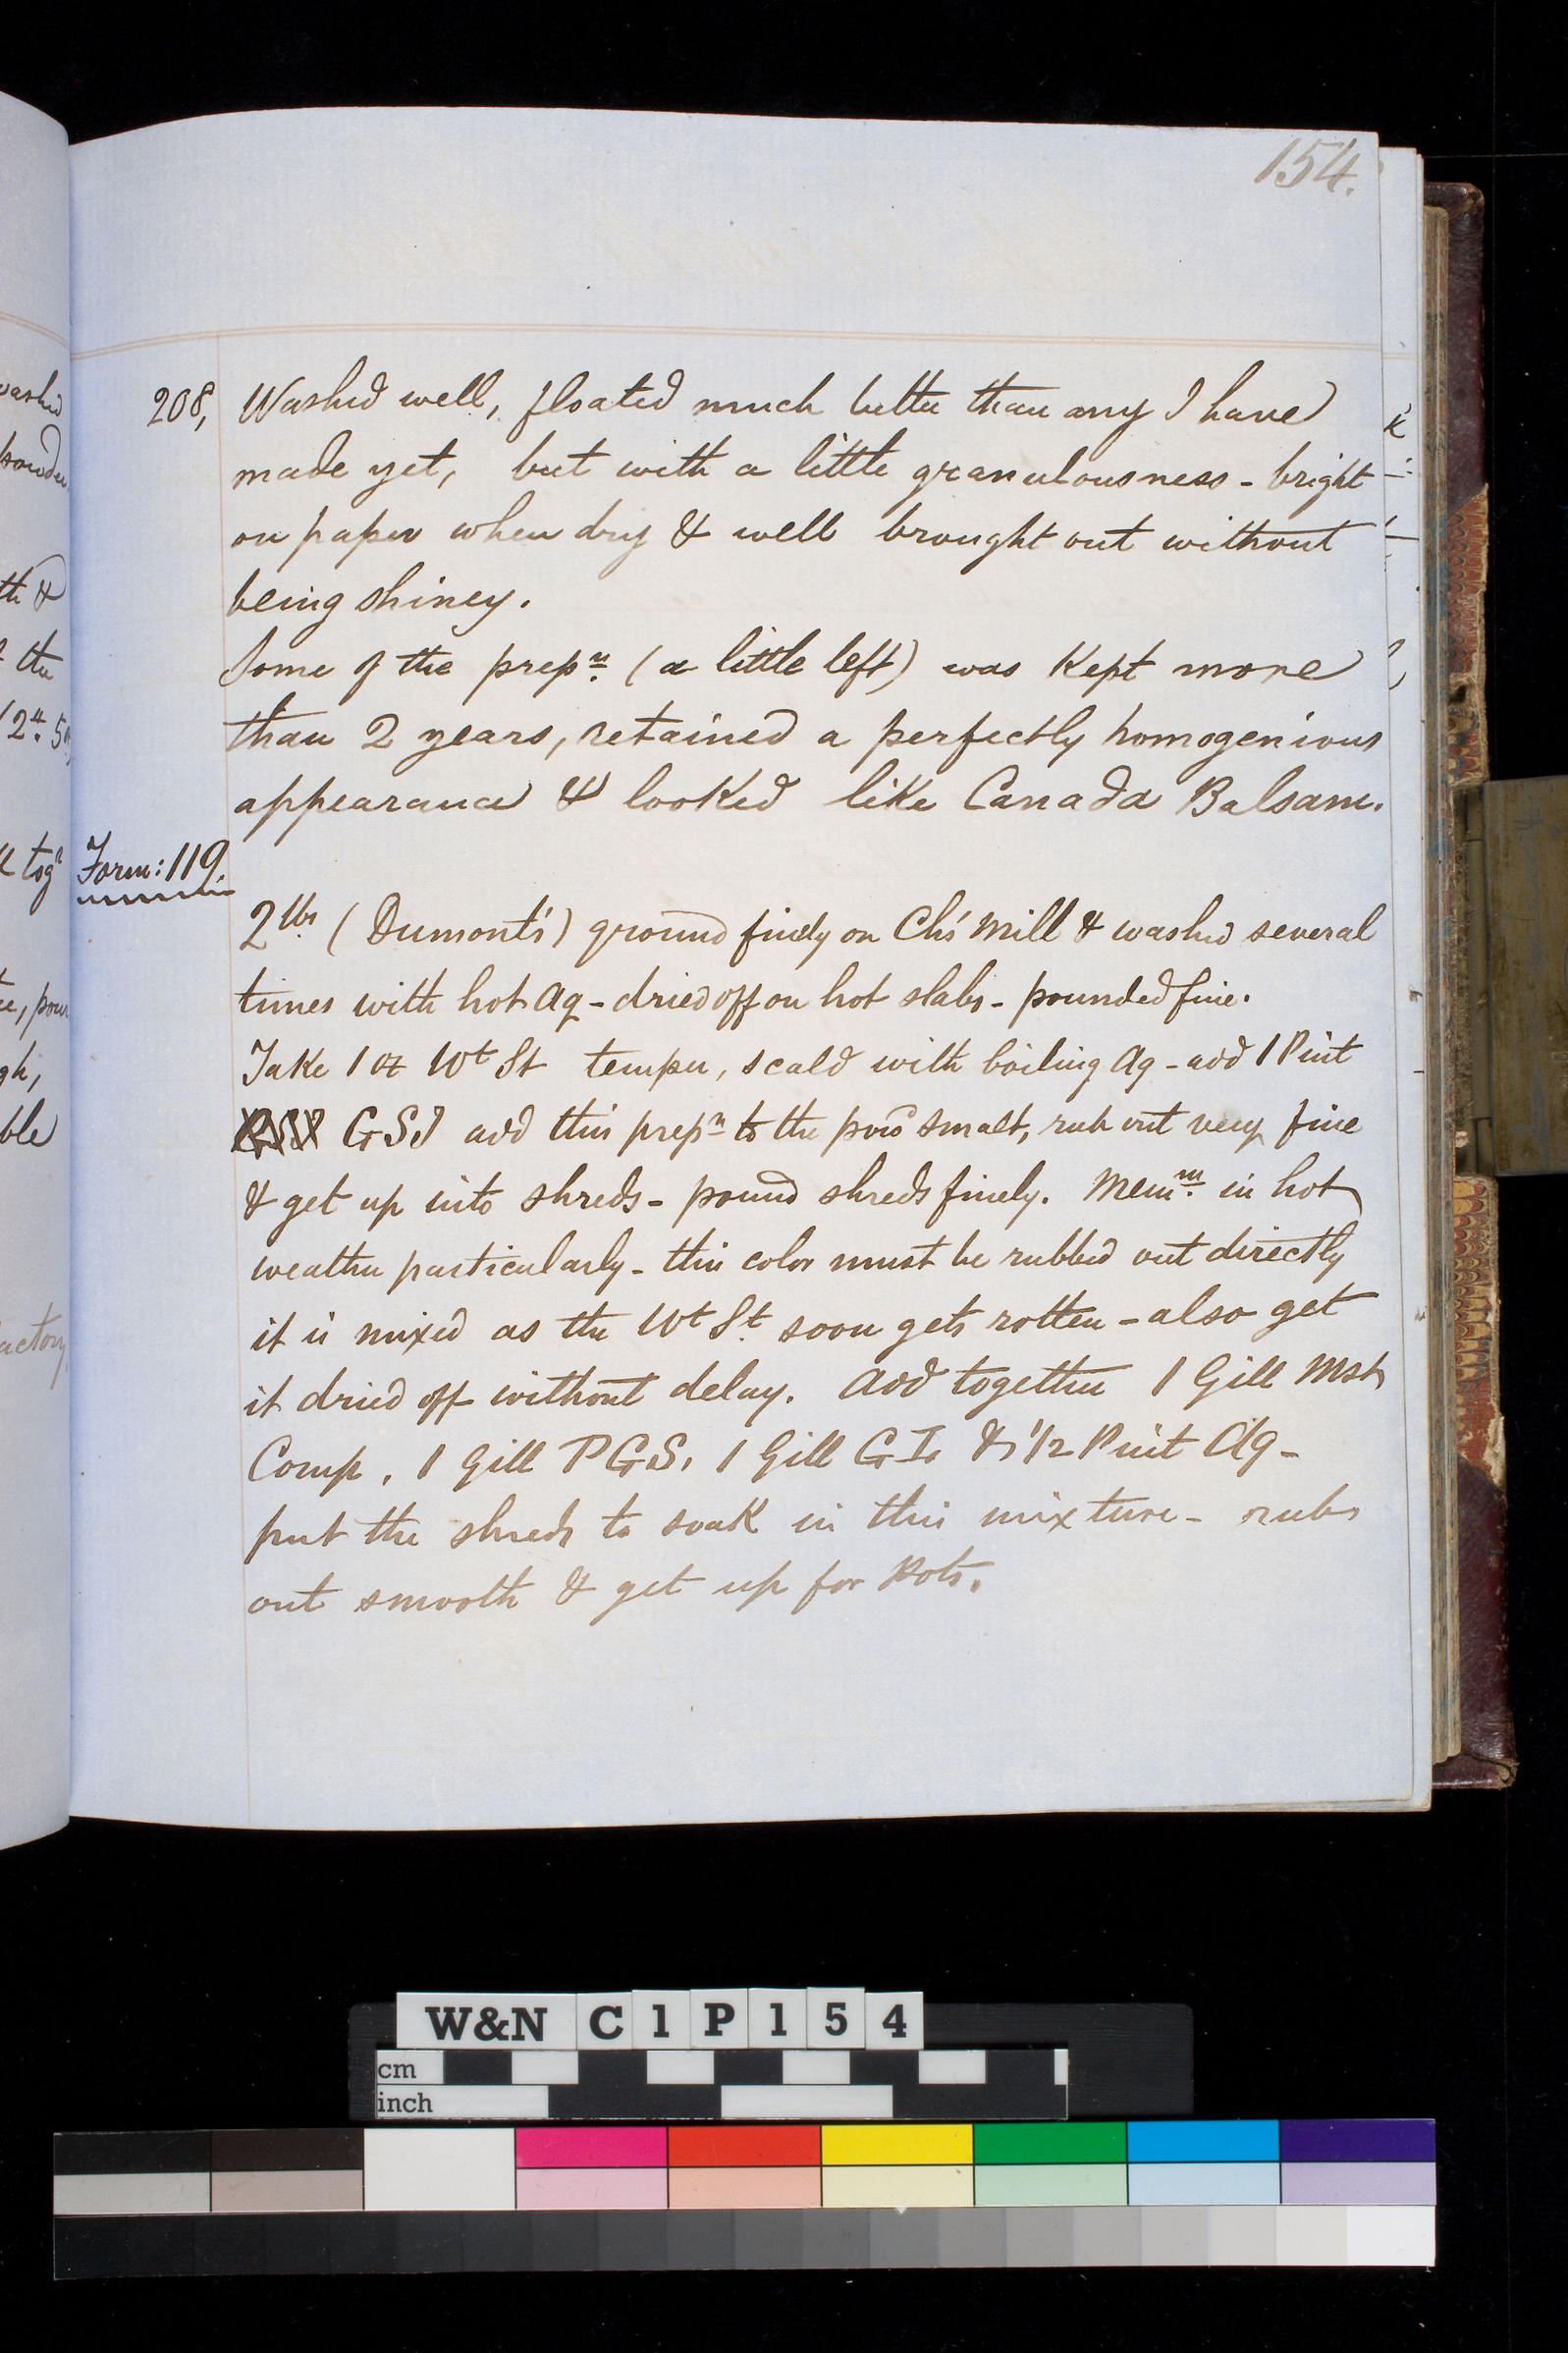 154.
208, Washed well, floated much better than any I have
made yet, but with a little granulousness - bright
on paper when dry & well brought out without
being shiney.
Some of the prepn. (a little left) was kept more
than 2 years, retained a perfectly homogenious
appearance & looked like Canada Balsam.
Form: 119.
2 lbs (Dumont's) ground finely on Ch's Mill & washed several
times with hot Aq - dried off on hot slabs - pounded fine.
Take 1 oz Wt St temper, scald with boiling Aq - add 1 Pint
GSI add this prepn to the powd smalt, rub out very fine
& get up into shreds - pound shreds finely. Memm. in hot
weather particularly - this color must be rubbed out directly
it is mixed as the Wt St. soon gets rotten - also get
it dried off without delay. Add together 1 Gill Mst
Comp. 1 Gill PGS. 1 Gill GI. & 1/2 Pint Aq -
put the shreds to soak in this mixture - rub
out smooth & get up for Pots.
washed
powder
th &
the
12.
tog
pow
gh,
ble
actory
W&N C1P154
cm
inch